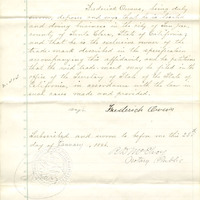 Frederick Cowans, being duly
sworn, deposes and says that he is
and doing business in the city of
of Santa Clara, State of California;
and that he is the exclusive owner of the
trade mark described in the specification
accompanying this affidavit, and he petitions
that the said trade mark may be filed in the
office of the Secretary of State of the State of
California, in accordance with the law in
such case made and provided.
Frederick
Subscribed and sworn to before me this 25th
day of January, 1886
Notary Public